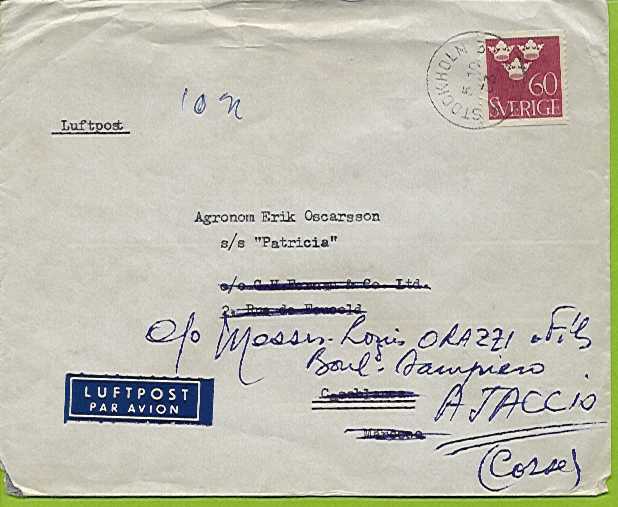 STOCKHOLM
60
SVERIGE
10
Luftpost
Agronom Erik Oscarsson
s/s "Patricia"
& Co. Ltd.
2, Rue de
c/o Messrs. Louis ORAZZI & Fils
Boul. Sampiero
Casablanca
AJACCIO
(Corse)
LUFTPOST
PAR AVION